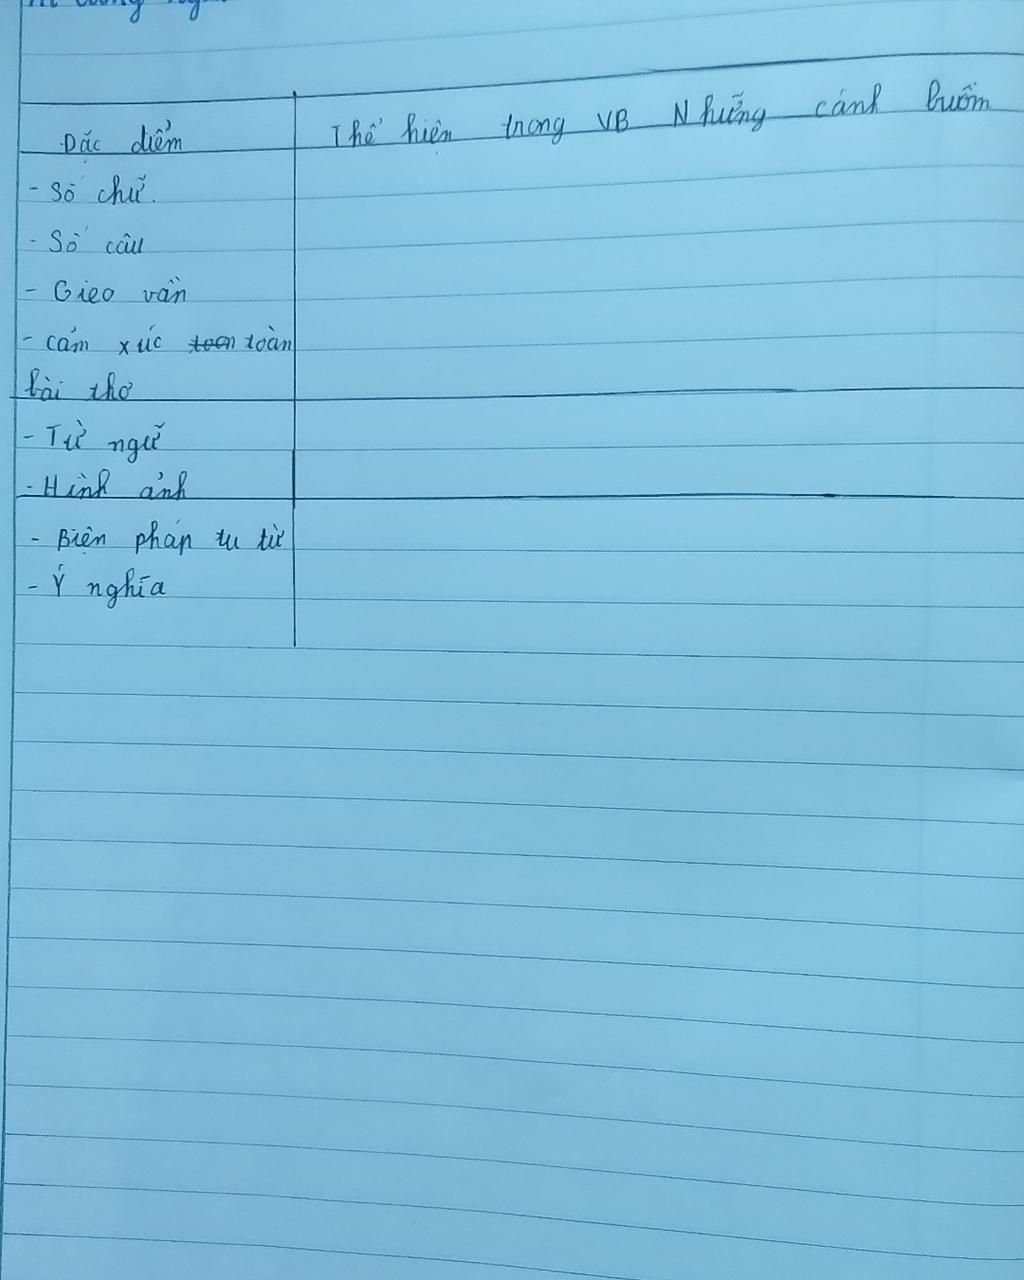 Đặc điểm Thể hiện trong VB Những cánh buồm
- Số chữ.
- Số câu
- Gieo vần
- cảm xúc toàn
bài thơ
- Từ ngữ
- Hình ảnh
- Biện pháp tu từ
- Ý nghĩa